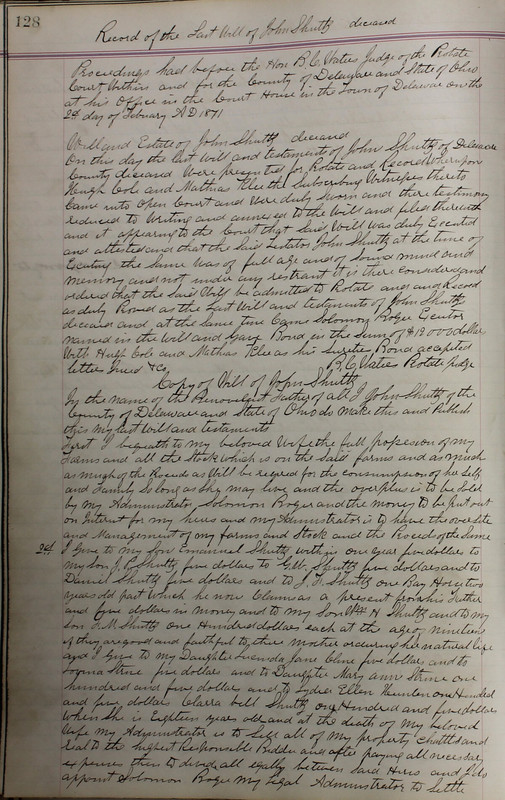 128
Record of the Last Will of John Shultz deceased
Proceedings had before the Hon B.C. Waties Judge of the Probate
Court Within and for the County of Delaware and State of Ohio
at his Office in the Court House in the Town of Delaware on the
2d day of Febuary A D 1871
Will and Estate of John Shultz deceased
On this day the last Will and testament of John Shultz of Delaware
County deceased Were presented for Probate and Record Whereupon
Hough Cole and Mathias Klee the Subscribing Witnesses thereto
Came into Open Court and Were duly Sworn and there testimony
reduced to Writing and annexed to the Will and filed therewith
and it appearing to the Court that Said Will was duly Executed
and attested and that the Said Testator John Shultz at the time of
Executing the Same Was of full age and of Sound mind and
memory and not under any restraint It is there considered and
ordered that the Said Will be admitted to Probate and and Record
as duly Proved as the Last Will and testament of John Shultz
deceased and at the Same time Came Solomon Boger Executor
named in the Will and Gave Bond in the Sum of $12000 dollars
With Hugh Cole and Mathias Klee as his Sureties Bond accepted
letters Issued &c B.C. Waties Probate Judge
Copy of Will of John Shultz
In the name of the Benevolent Father of all I John Shultz of the
County of Delaware and State of Ohio do Make this and Publish
this my last will and testament
First I bequeath to my beloved Wife the full possession of my
Farms and all the Stock which is on the Said farms and as much
as much of the Proceeds as Will be required for the consumption of her Self
and Family So long as She may live and the overplus is to be Sold
by my Administrator Solomon Boger and the money to be Put out
on Interest for my heirs and my Administrator is to have the oversite
and Management of my farms and Stock and the Proceeds of the Same
2d I Give to my Son Emanuel Shultz within one year five dollars to
my Son J. P. Shultz five dollars to G.W. Shultz five dollars and to
Daniel Shultz five dollars and to J. F. Shultz one Bay Horse two
years old past Which he now Claims as a present from his Father
and five dollars in money and to my Son Wm H Shultz and to my
Son M Shultz one Hundred dollars each at the age of nineteen
if they are good and faithful to there mother or during her natural life
and I Give to my Daughter Lucinda Jane Cline five dollars and to
Strine five dollars and to Daughter Mary ann Strine one
hundred and five dollars and to Lydia Ellen one Hundred
and five dollars Clara bell Shultz one Hundred and five dollars
When She is Eighteen years old and at the death of My beloved
Wife my Administrator is to Sell all of my property Chattel and
Real to the highest Responsible Bidder and after paying all necessary
expenses then to divide all equally between Said Heirs and I do
appoint Solomon Boger my Legal Administrator to Settle